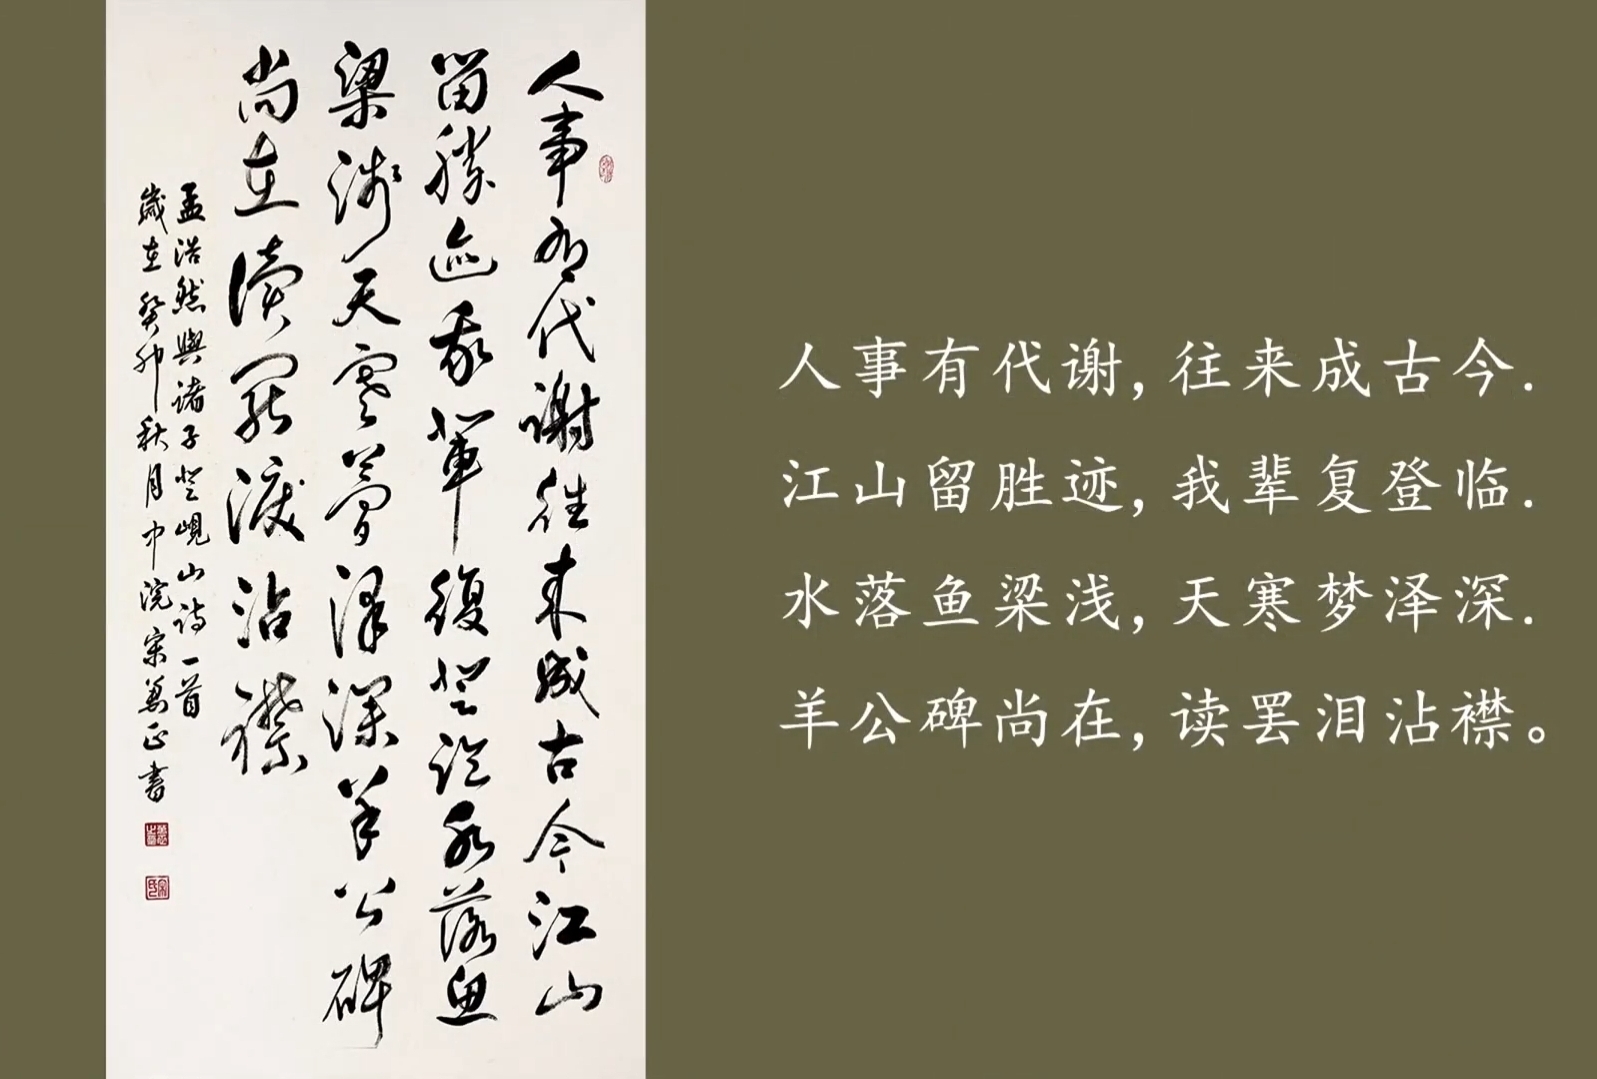 人事有代谢往来成古今江山
留胜迹我辈復登临水落鱼
梁浅天寒梦泽深羊公碑
尚在读罢泪沾襟
孟浩然與诸子登岘山诗一首
歲在癸卯秋月中浣宋善正書
人事有代谢,往来成古今.
江山留胜迹,我辈复登临.
水落鱼梁浅,天寒梦泽深.
羊公碑尚在,读罢泪沾襟。